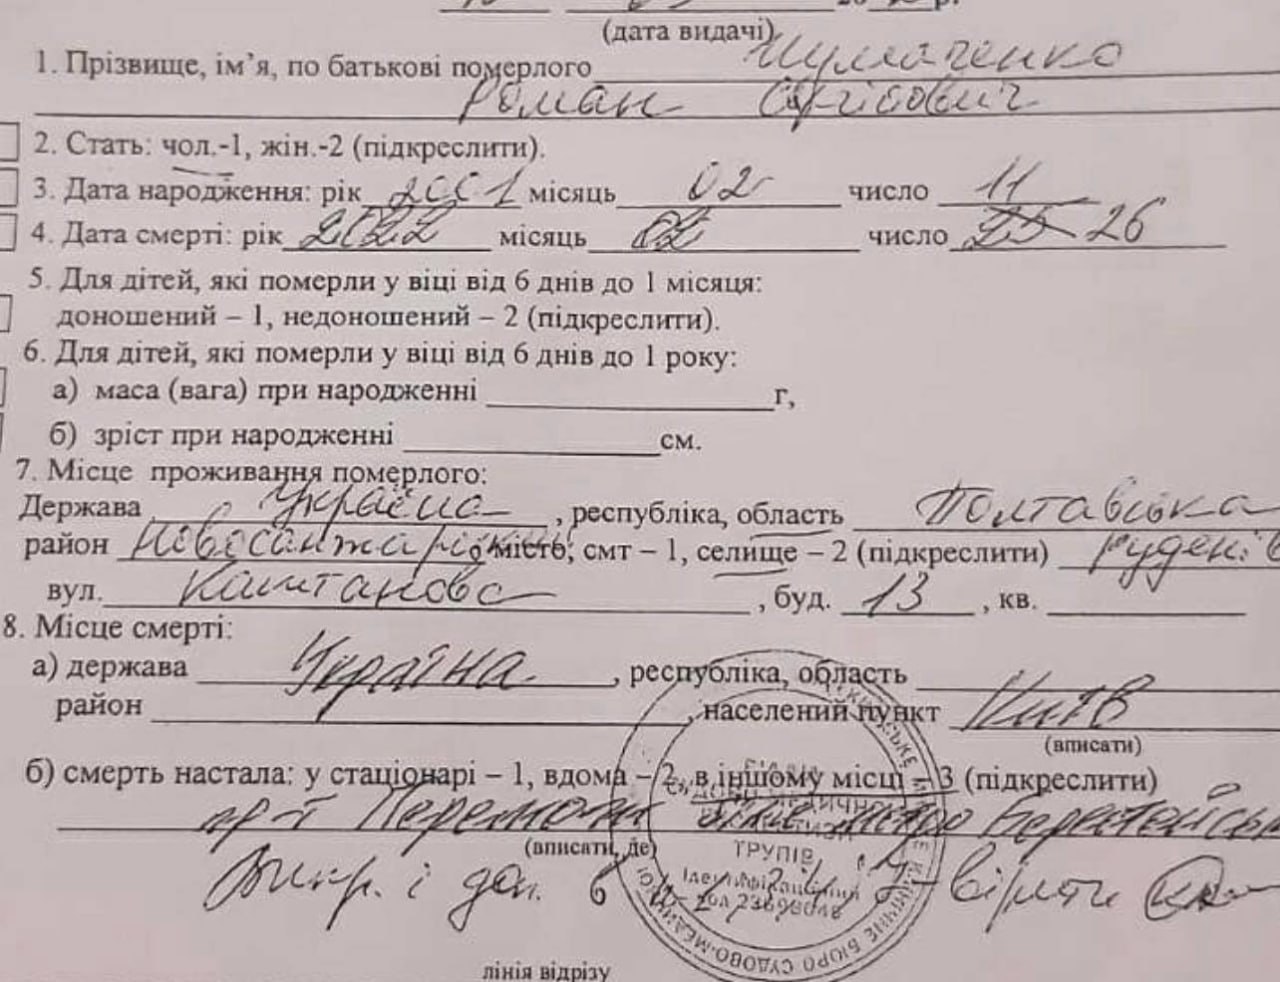 (дата видачі)
1. Прізвище, ім’я, по батькові померлого Шумаченко
Роман
2. Стать: чол.-1, жін.-2 (підкреслити).
3. Дата народження: рік 2001 місяць 02 число 11
4. Дата смерті: рік 2022 місяць 02 число 25 26
5. Для дітей, які померли у віці від 6 днів до 1 місяця:
доношений – 1, недоношений – 2 (підкреслити).
6. Для дітей, які померли у віці від 6 днів до 1 року:
а) маса (вага) при народженні г,
б) зріст при народженні см.
7. Місце проживання померлого:
Держава Україна, республіка, область Полтавська
район Новосанжарський місто, смт – 1, селище – 2 (підкреслити)
вул. Каштанова, буд. 13, кв.
8. Місце смерті:
а) держава Україна, республіка, область
район , населений пункт Київ
(вписати)
б) смерть настала: у стаціонарі – 1, вдома – 2, в іншому місці – 3 (підкреслити)
пр-т Перемоги біля метро Берестейська
(вписати, де)
ТРУПІВ
Випр. і доп. вірити
лінія відрізу